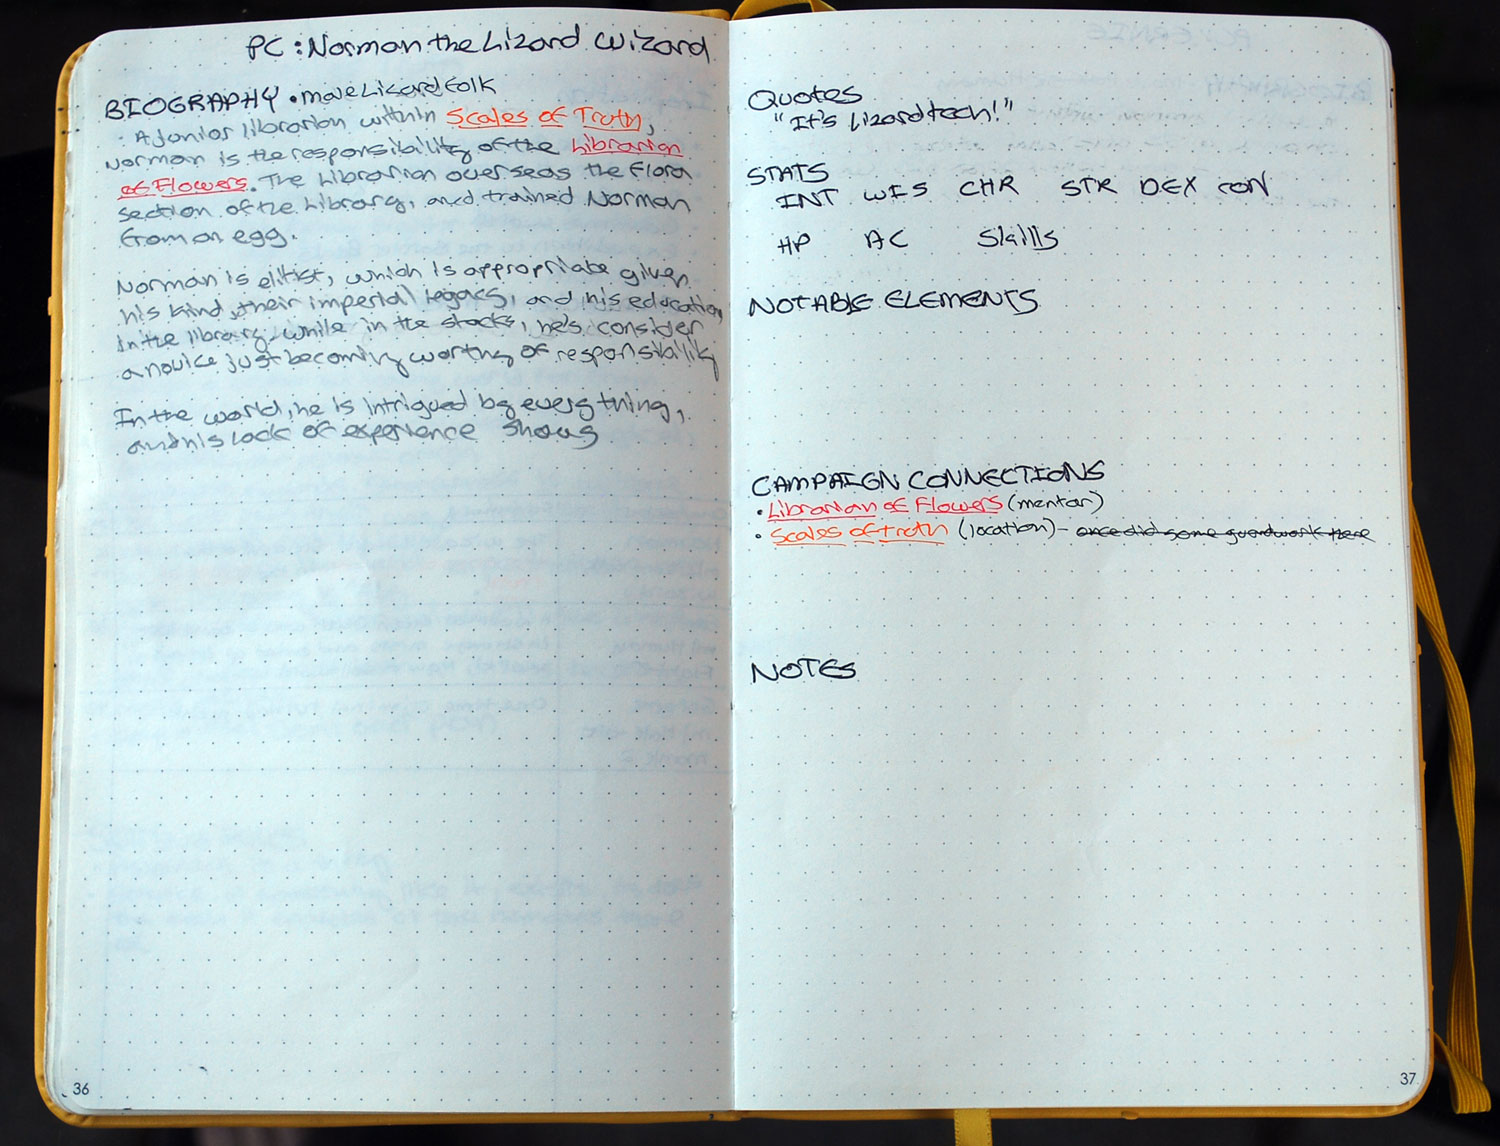 PC: Norman the Lizard Wizard
BIOGRAPHY • male Lizardfolk
· A junior librarian within Scales of Truth,
Norman is the responsibility of the Librarian
of Flowers. The Librarian overseas the Flora
section of the Library, and trained Norman
from an egg.
Norman is elitist, which is appropriate given
his kind, their imperial legacy, and his education
in the library. While in the stacks, he's consider
a novice just becoming worthy of responsibility
In the world, he is intrigued by everything,
and his lack of experience shows
36
Quotes
"It's Lizardtech!"
STATS
INT WIS CHR STR DEX CON
HP AC Skills
NOTABLE ELEMENTS
CAMPAIGN CONNECTIONS
• Librarian of Flowers (mentor)
• Scales of Truth (location) - once did some guardwork there
NOTES
37